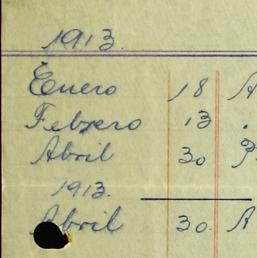 1913.
Enero 18 A
Febrero 13 .
Abril 30 P.
1913.
Abril 30. A